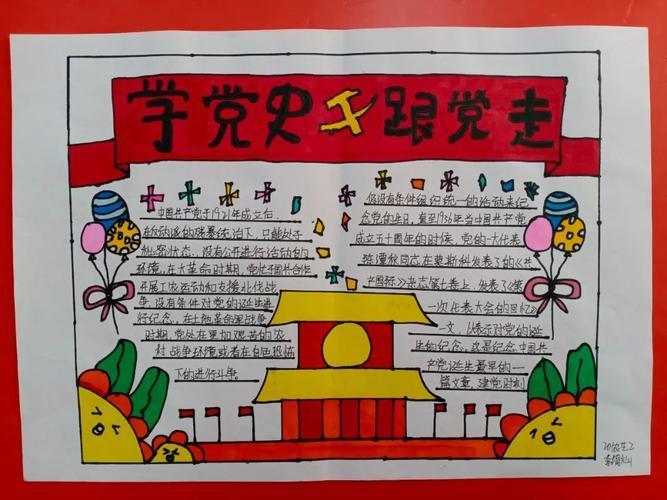 学党史跟党走
中国共产党于1921年成立后,
在反动派的残暴统治下,只能处于
秘密状态,没有公开进行活动的
环境,在大革命时期,党忙于国共合作
开展工农运动和支援北伐战
争,没有条件对党的诞生进
行纪念,在土地革命里战争
时期,党处在更加艰苦的农
村战争环境或者在白色恐怖
下的进行斗争。
但没有条件组织统一的活动来纪
念党的生日,直至1936年当中国共产党
成立五十周年的时候,党的一大代表
陈潭秋同志在莫斯科发表了的《共
产国际》杂志第七卷上,发表了《第
一次代表大会的回忆》
一文,以表示对党的诞
生的纪念。这是纪念中国共
产党诞生最早的一
篇文章,建党时刻